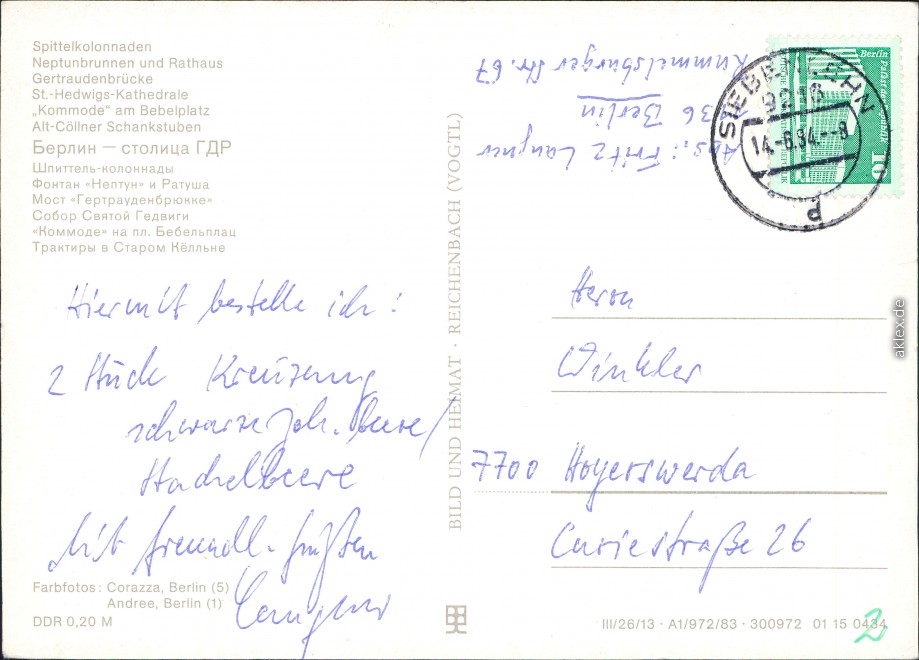 Spittelkolonnaden
Neptunbrunnen und Rathaus
Gertraudenbrücke
St.-Hedwigs-Kathedrale
„Kommode" am Bebelplatz
Alt-Cöllner Schankstuben
Берлин — столица ГДР
Шпиттель-колоннады
Фонтан «Нептун» и Ратуша
Мост «Гертрауденбрюкке»
Собор Святой Гедвиги
«Коммоде» на пл. Бебельплац
Трактиры в Старом Кёлльне
Hiermit bestelle ich:
2 Stück Kreuzung
schwarze Joh.beere/
Stachelbeere
Mit freundl. Grüßen
Langner
Farbfotos: Corazza, Berlin (5)
Andree, Berlin (1)
DDR 0,20 M
BILD UND HEIMAT · REICHENBACH (VOGTL)
Abs.: Fritz Langner
36 Berlin
Rummelsburger Str. 67
SIEBENLEHN
9213
14.-6.84.--8
Berlin Palast der Republik
10
Herrn
Winkler
7700 Hoyerswerda
Curiestraße 26
III/26/13 · A1/972/83 · 300972 01 15 0434
2
aklex.de